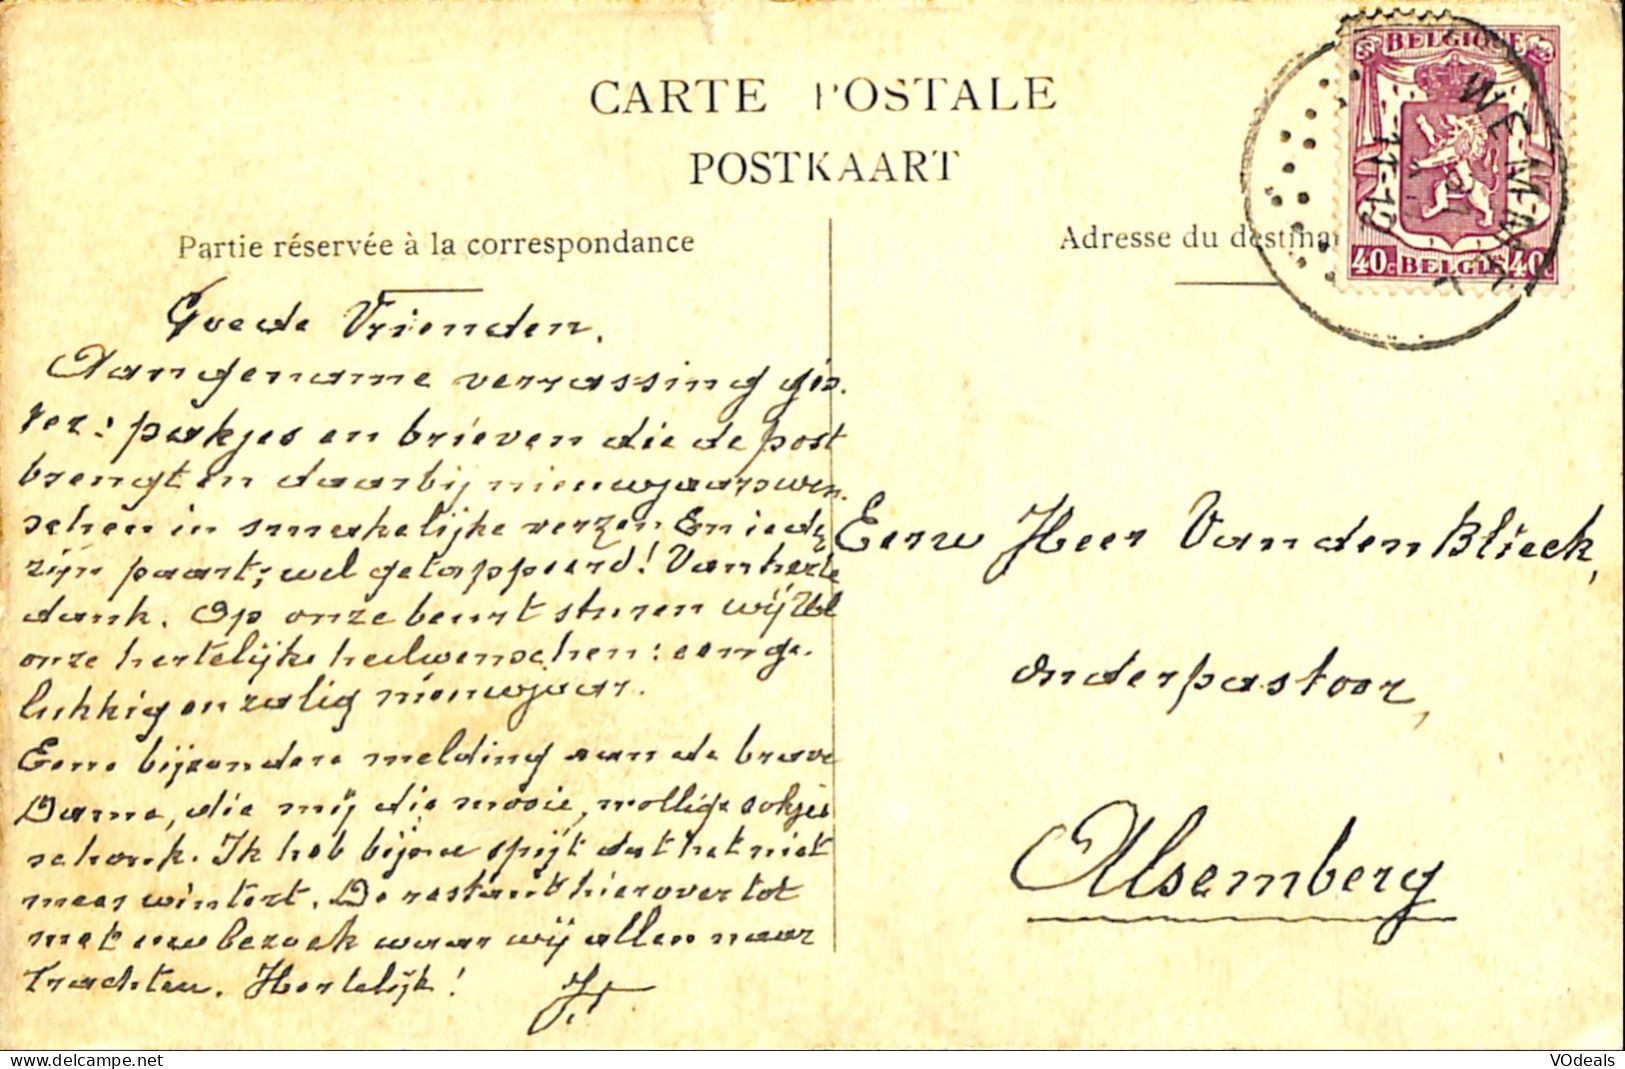 CARTE POSTALE
POSTKAART
Partie réservée à la correspondance
Adresse du destina
BELGIQUE
40c BELGIE 40c
WEMMEL
11-12
Goede Vrienden.
Aangename verrassing gis-
ter: pakjes en brieven die de post
brengt en daarbij nieuwjaarswen-
schen in smakelijke verzen. En iede
zijn paart; wel getapperd! Van herte
dank. Op onze beurt sturen wij Ul
onze hertelijke heilwenschen: een ge-
lukkig en zalig nieuwjaar.
Eene bijzondere melding aan de brave
Dame, die mij die mooie, mollige sokjes
schonk. Ik heb bijna spijt dat het niet
meer wintert. De restant hierover tot
met uw bezoek waar wij allen naar
trachten. Hertelijk!
Eerw Heer Van den Blieck,
onderpastoor,
Alsemberg
www.delcampe.net
VOdeals